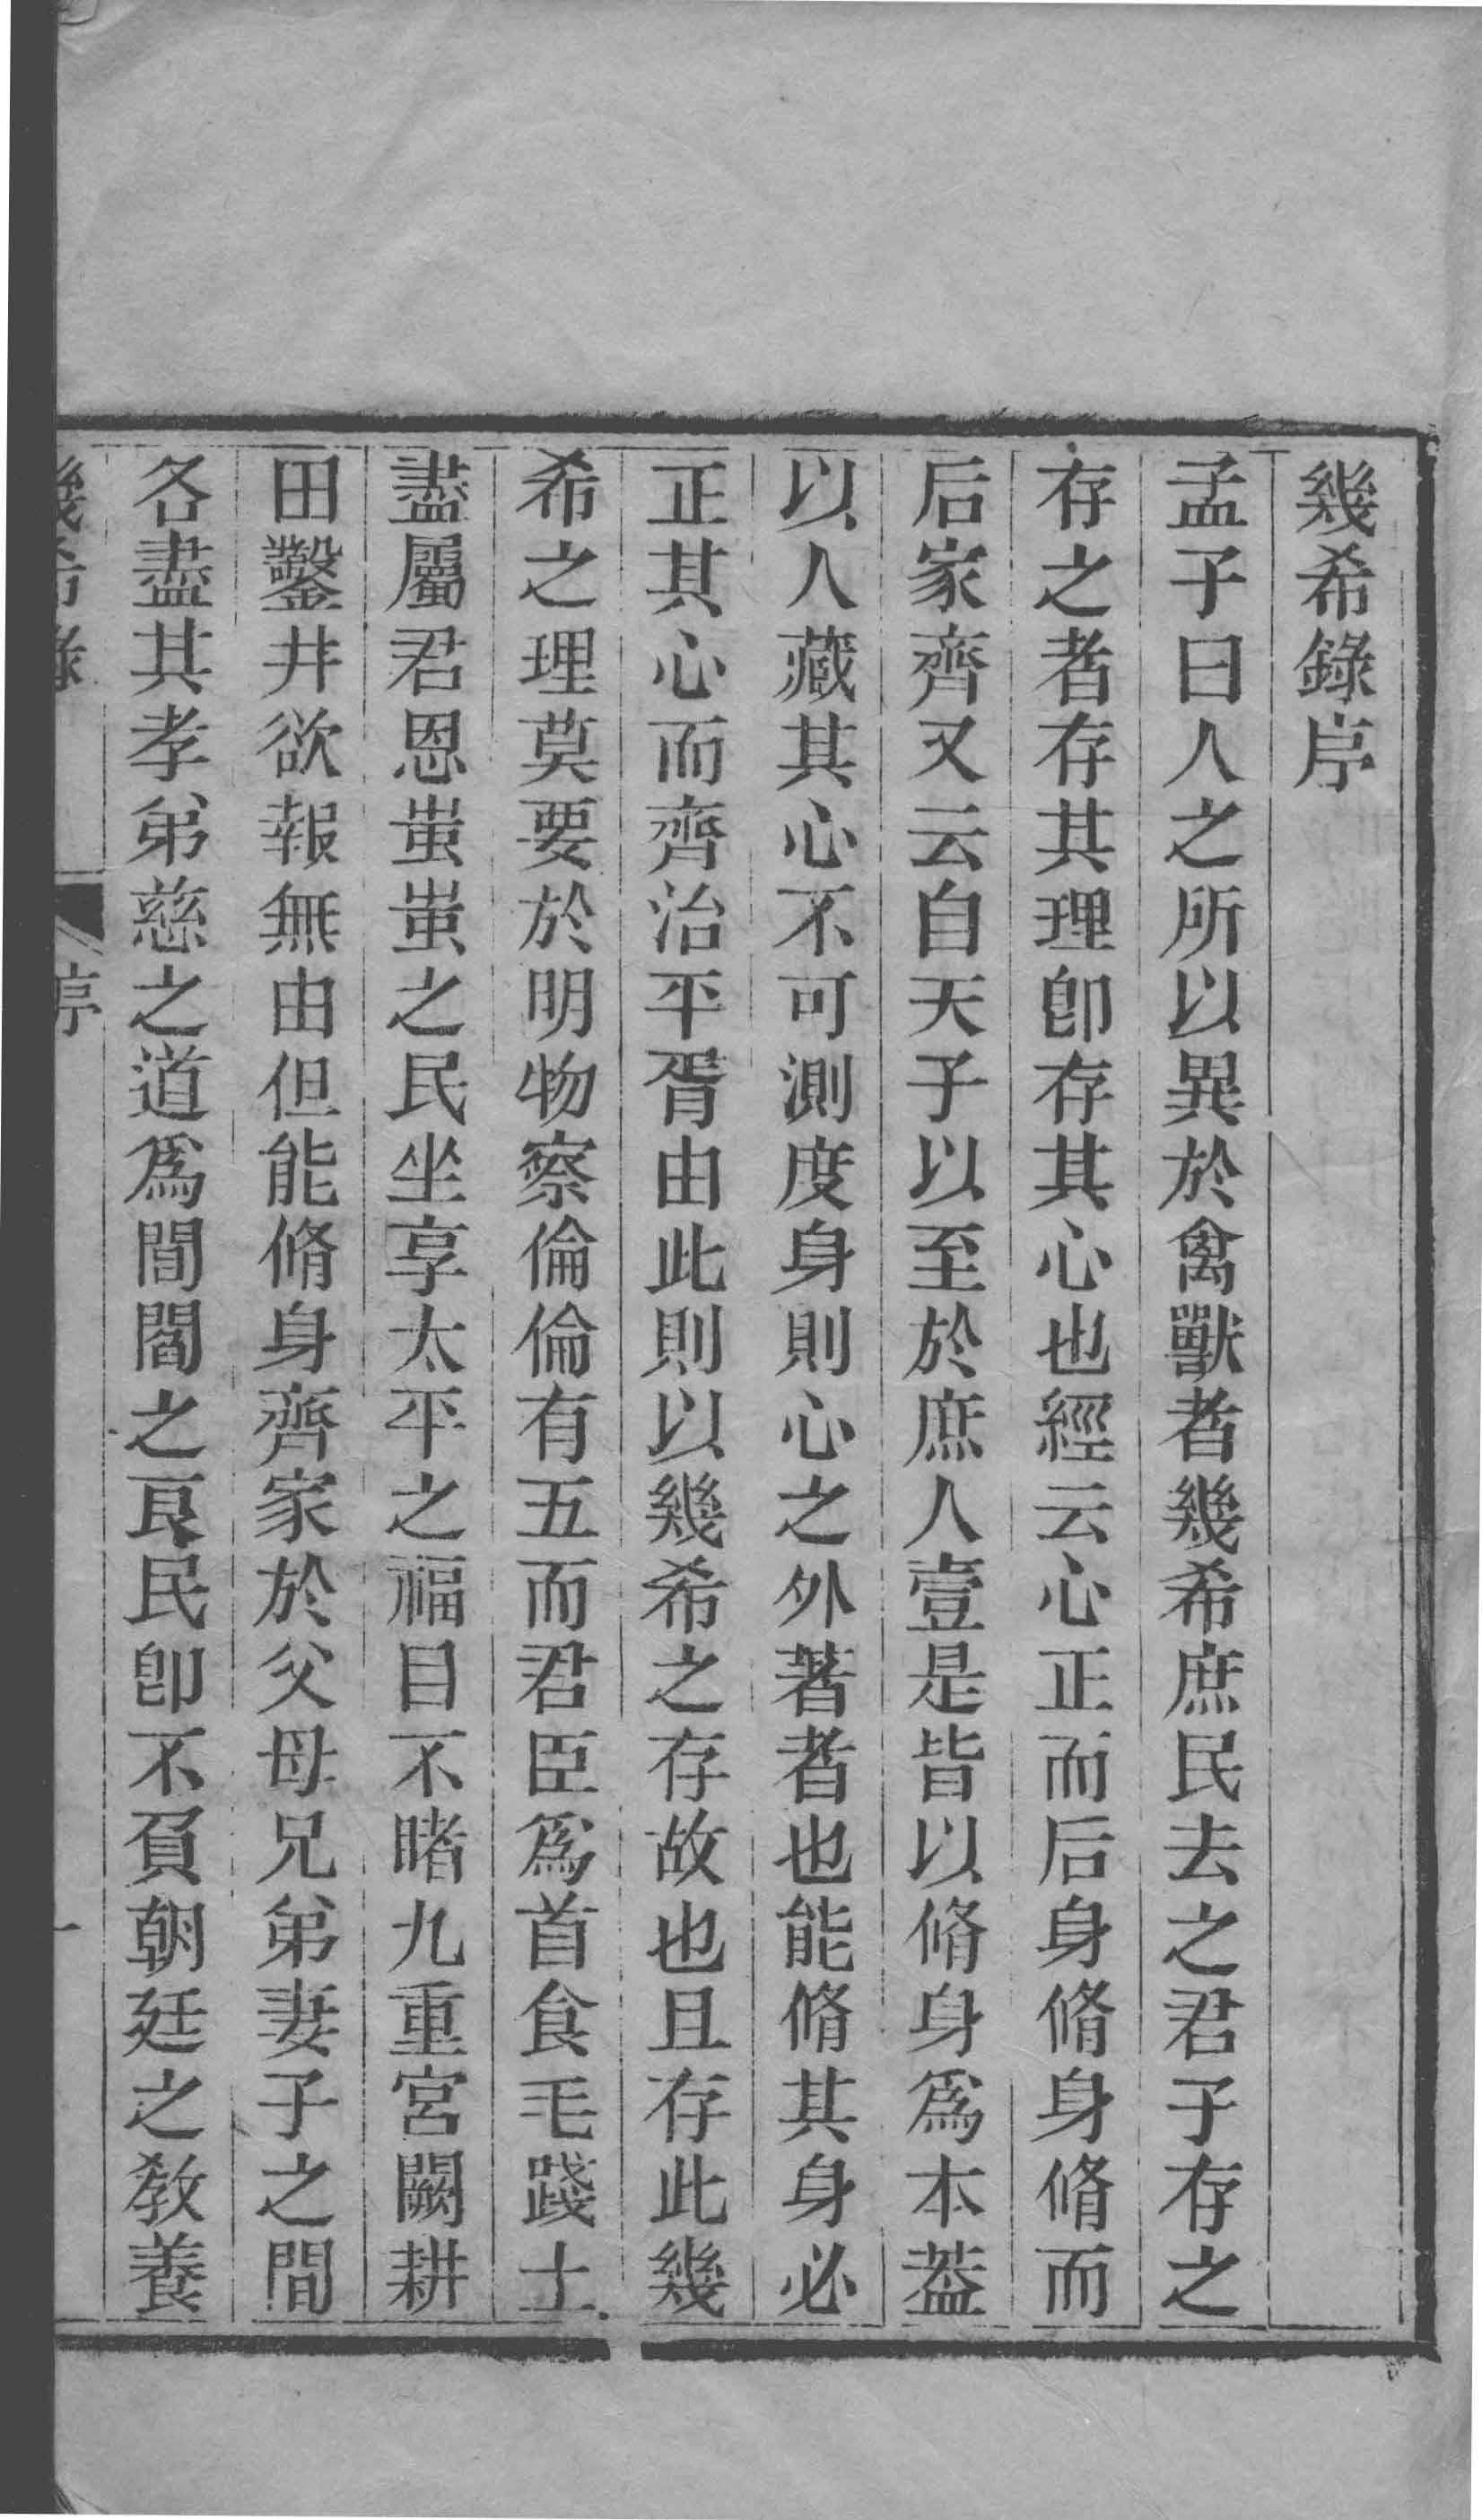 幾希錄序
孟子曰人之所以異於禽獸者幾希庶民去之君子存之
存之者存其理卽存其心也經云心正而后身脩身脩而
后家齊又云自天子以至於庶人壹是皆以脩身爲本葢
以人藏其心不可測度身則心之外著者也能脩其身必
正其心而齊治平胥由此則以幾希之存故也且存此幾
希之理莫要於明物察倫倫有五而君臣爲首食毛踐土
盡屬君恩蚩蚩之民坐享太平之福目不睹九重宮闕耕
田鑿井欲報無由但能脩身齊家於父母兄弟妻子之間
各盡其孝弟慈之道爲閭閻之良民卽不負朝廷之敎養
幾希錄 序 一